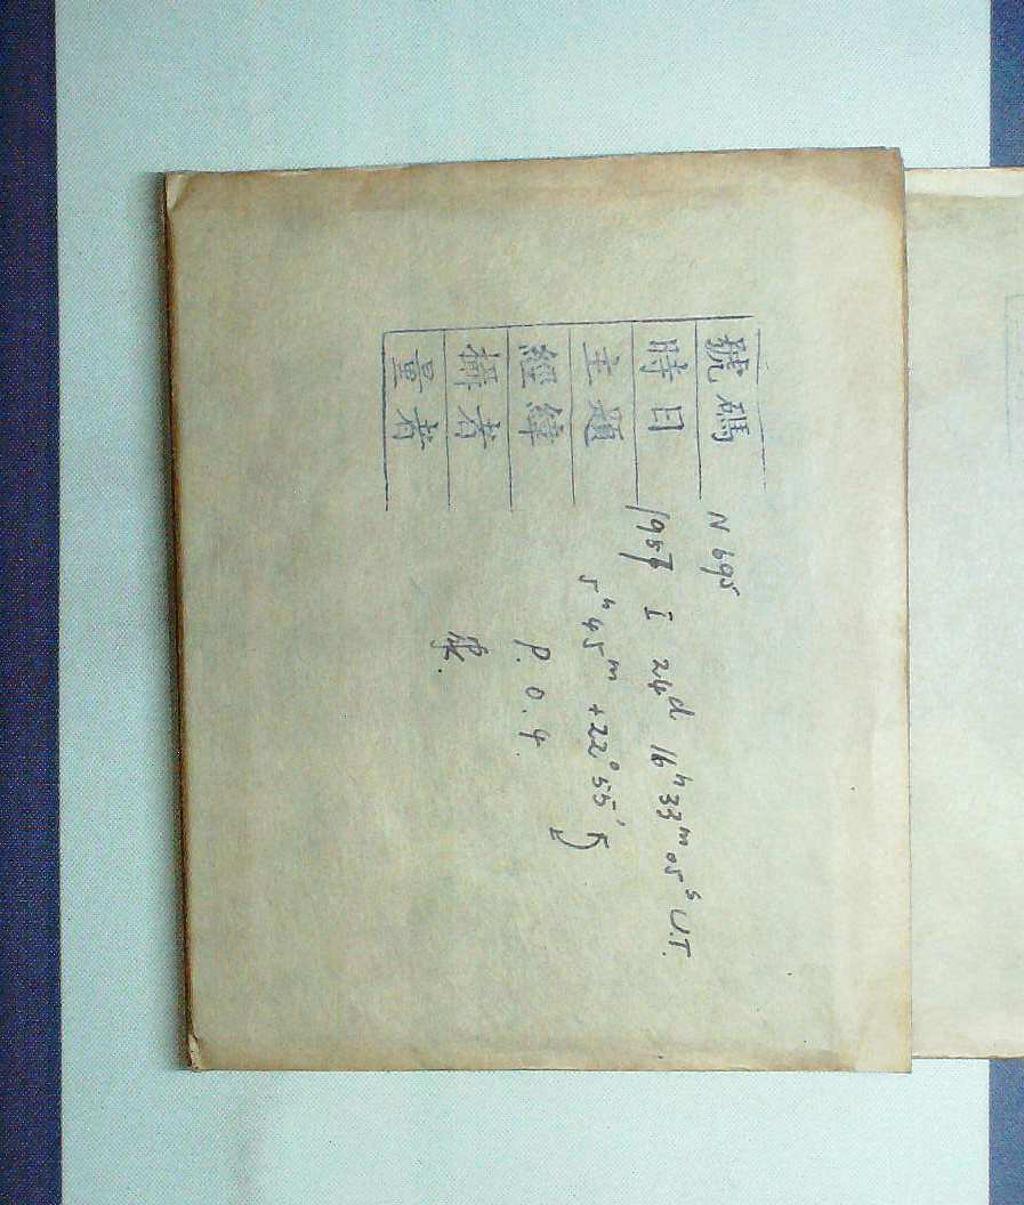 號碼 N 695
時日 1957 I 24d 16h 33m 05s U.T.
主題 5h 45m +22° 55'
經緯 P. O. 4.
攝者
量者